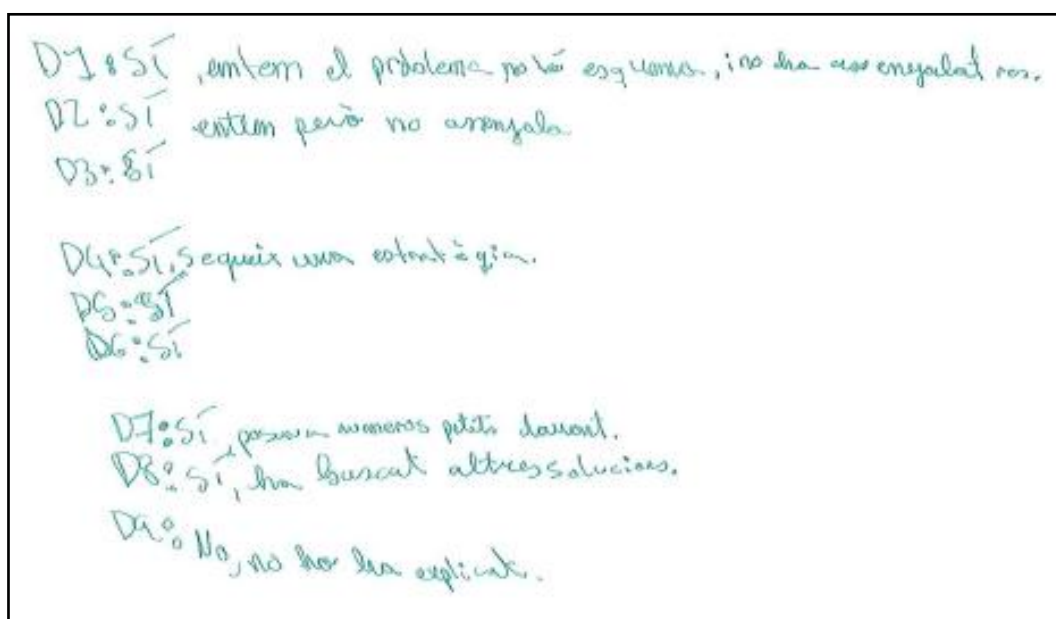 D1: SÍ, entem el problema no té esquema, i no ha assenyalat res.
D2: SÍ entem però no assenyala
D3: SÍ
D4: SÍ, segueix una estratègia.
D5: SÍ
D6: SÍ
D7: SÍ, posava numeros petits davant.
D8: SÍ, ha buscat altres solucions.
D9: No, no ho ha explicat.